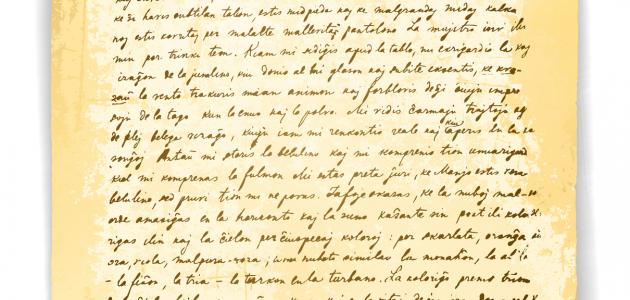 ke ŝi havis subtilan talon, estis nudpieda kaj ke malgrandaj nudaj kalka
noj estis kovritaj per malalte mallevitaj pantalono. La majstro invitis
min por trinki teon. Kiam mi sidiĝis apud la tablo, mi ekrigardis la viz
aĝon de la junulino, kiu donis al mi glason kaj subite eksentis, ke kva-
zaŭ la vento trakuris mian animon kaj forblovis de ĝi ĉiujn impre
sojn de la tago kun la enuo kaj la polvo. Mi vidis ĉarmajn trajtojn
de plej belega vizaĝo, kiujn iam mi renkontis reale kaj kiuj aperis en la
sonĝoj. Antaŭ mi staris la belulino kaj mi komprenis tion unuarigarde
kiel mi komprenas la fulmon. Mi estas preta ĵuri, ke Manjo estis vera
belulino, sed pruvi tion mi ne povas. Iafoje okazas, ke la nuboj mal
orde amasiĝas en la horizonto kaj la suno kaŝante sin post ili kolo
rigas ilin kaj la ĉielon per ĉiuspecaj koloroj: per skarlata, oranĝa
ora, viola, malpura-roza; unu nubeto similas la monaĥon, la alia
- la fiŝon, la tria - la turkon en la turbano. La koloriĝo prenis